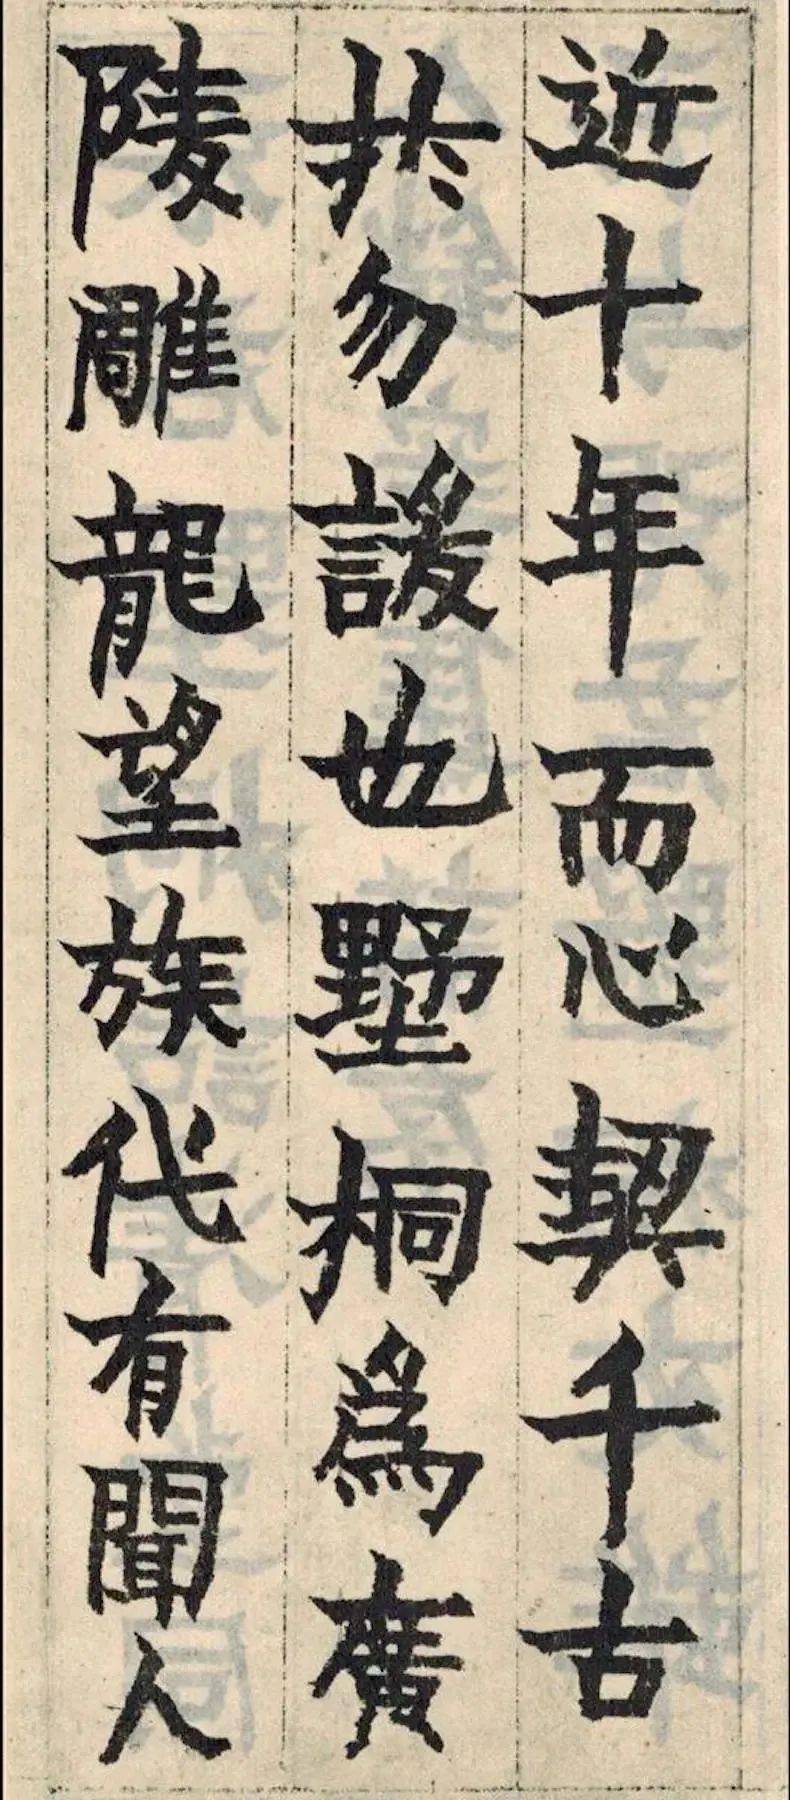 近十年而心契千古
於勿諼也墅桐為廣
陵雕龍望族代有聞人